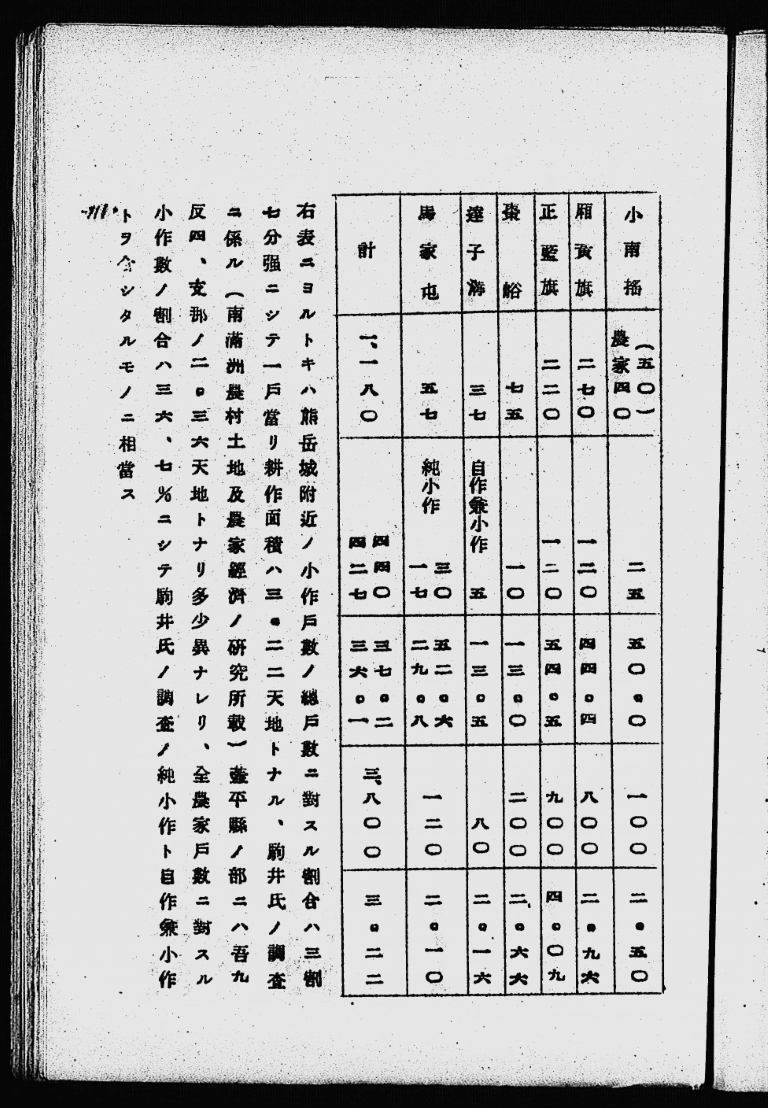 小南搖 （五〇） 農家四〇 二五 五〇。〇 一〇〇 二。五〇
廂黃旗 二七〇 一二〇 四四。四 八〇〇 二。九六
正藍旗 二二〇 一二〇 五四。五 九〇〇 四。〇九
棗峪 七五 一〇 一三。〇 二〇〇 二。六六
達子溝 三七 自作兼小作 五 一三。五 八〇 二。一六
馬家屯 五七 純小作 三〇 一七 五二。六 二九。八 一二〇 二。一〇
計 一、一八〇 四四〇 四二七 三七。二 三六。一 三、八〇〇 三。二二
右表ニヨルトキハ熊岳城附近ノ小作戶數ノ總戶數ニ對スル割合ハ三割
七分强ニシテ一戶當リ耕作面積ハ三。二二天地トナル、駒井氏ノ調査
ニ係ル（南滿洲農村土地及農家經濟ノ硏究所載）蓋平縣ノ部ニハ吾九
反四、支那ノ二。三六天地トナリ多少異ナレリ、全農家戶數ニ對スル
小作數ノ割合ハ三六、七％ニシテ駒井氏ノ調査ノ純小作ト自作兼小作
トヲ合シタルモノニ相當ス